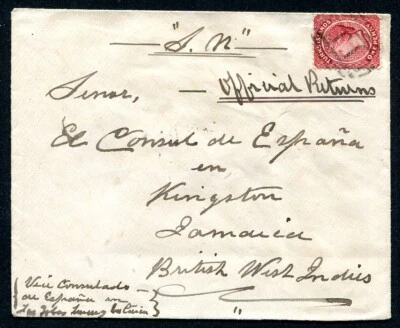 "S. N."
Official Returns
Senor,
El Consul de España
en
Kingston
Jamaica
British West Indies
Vice Consulado
de España en